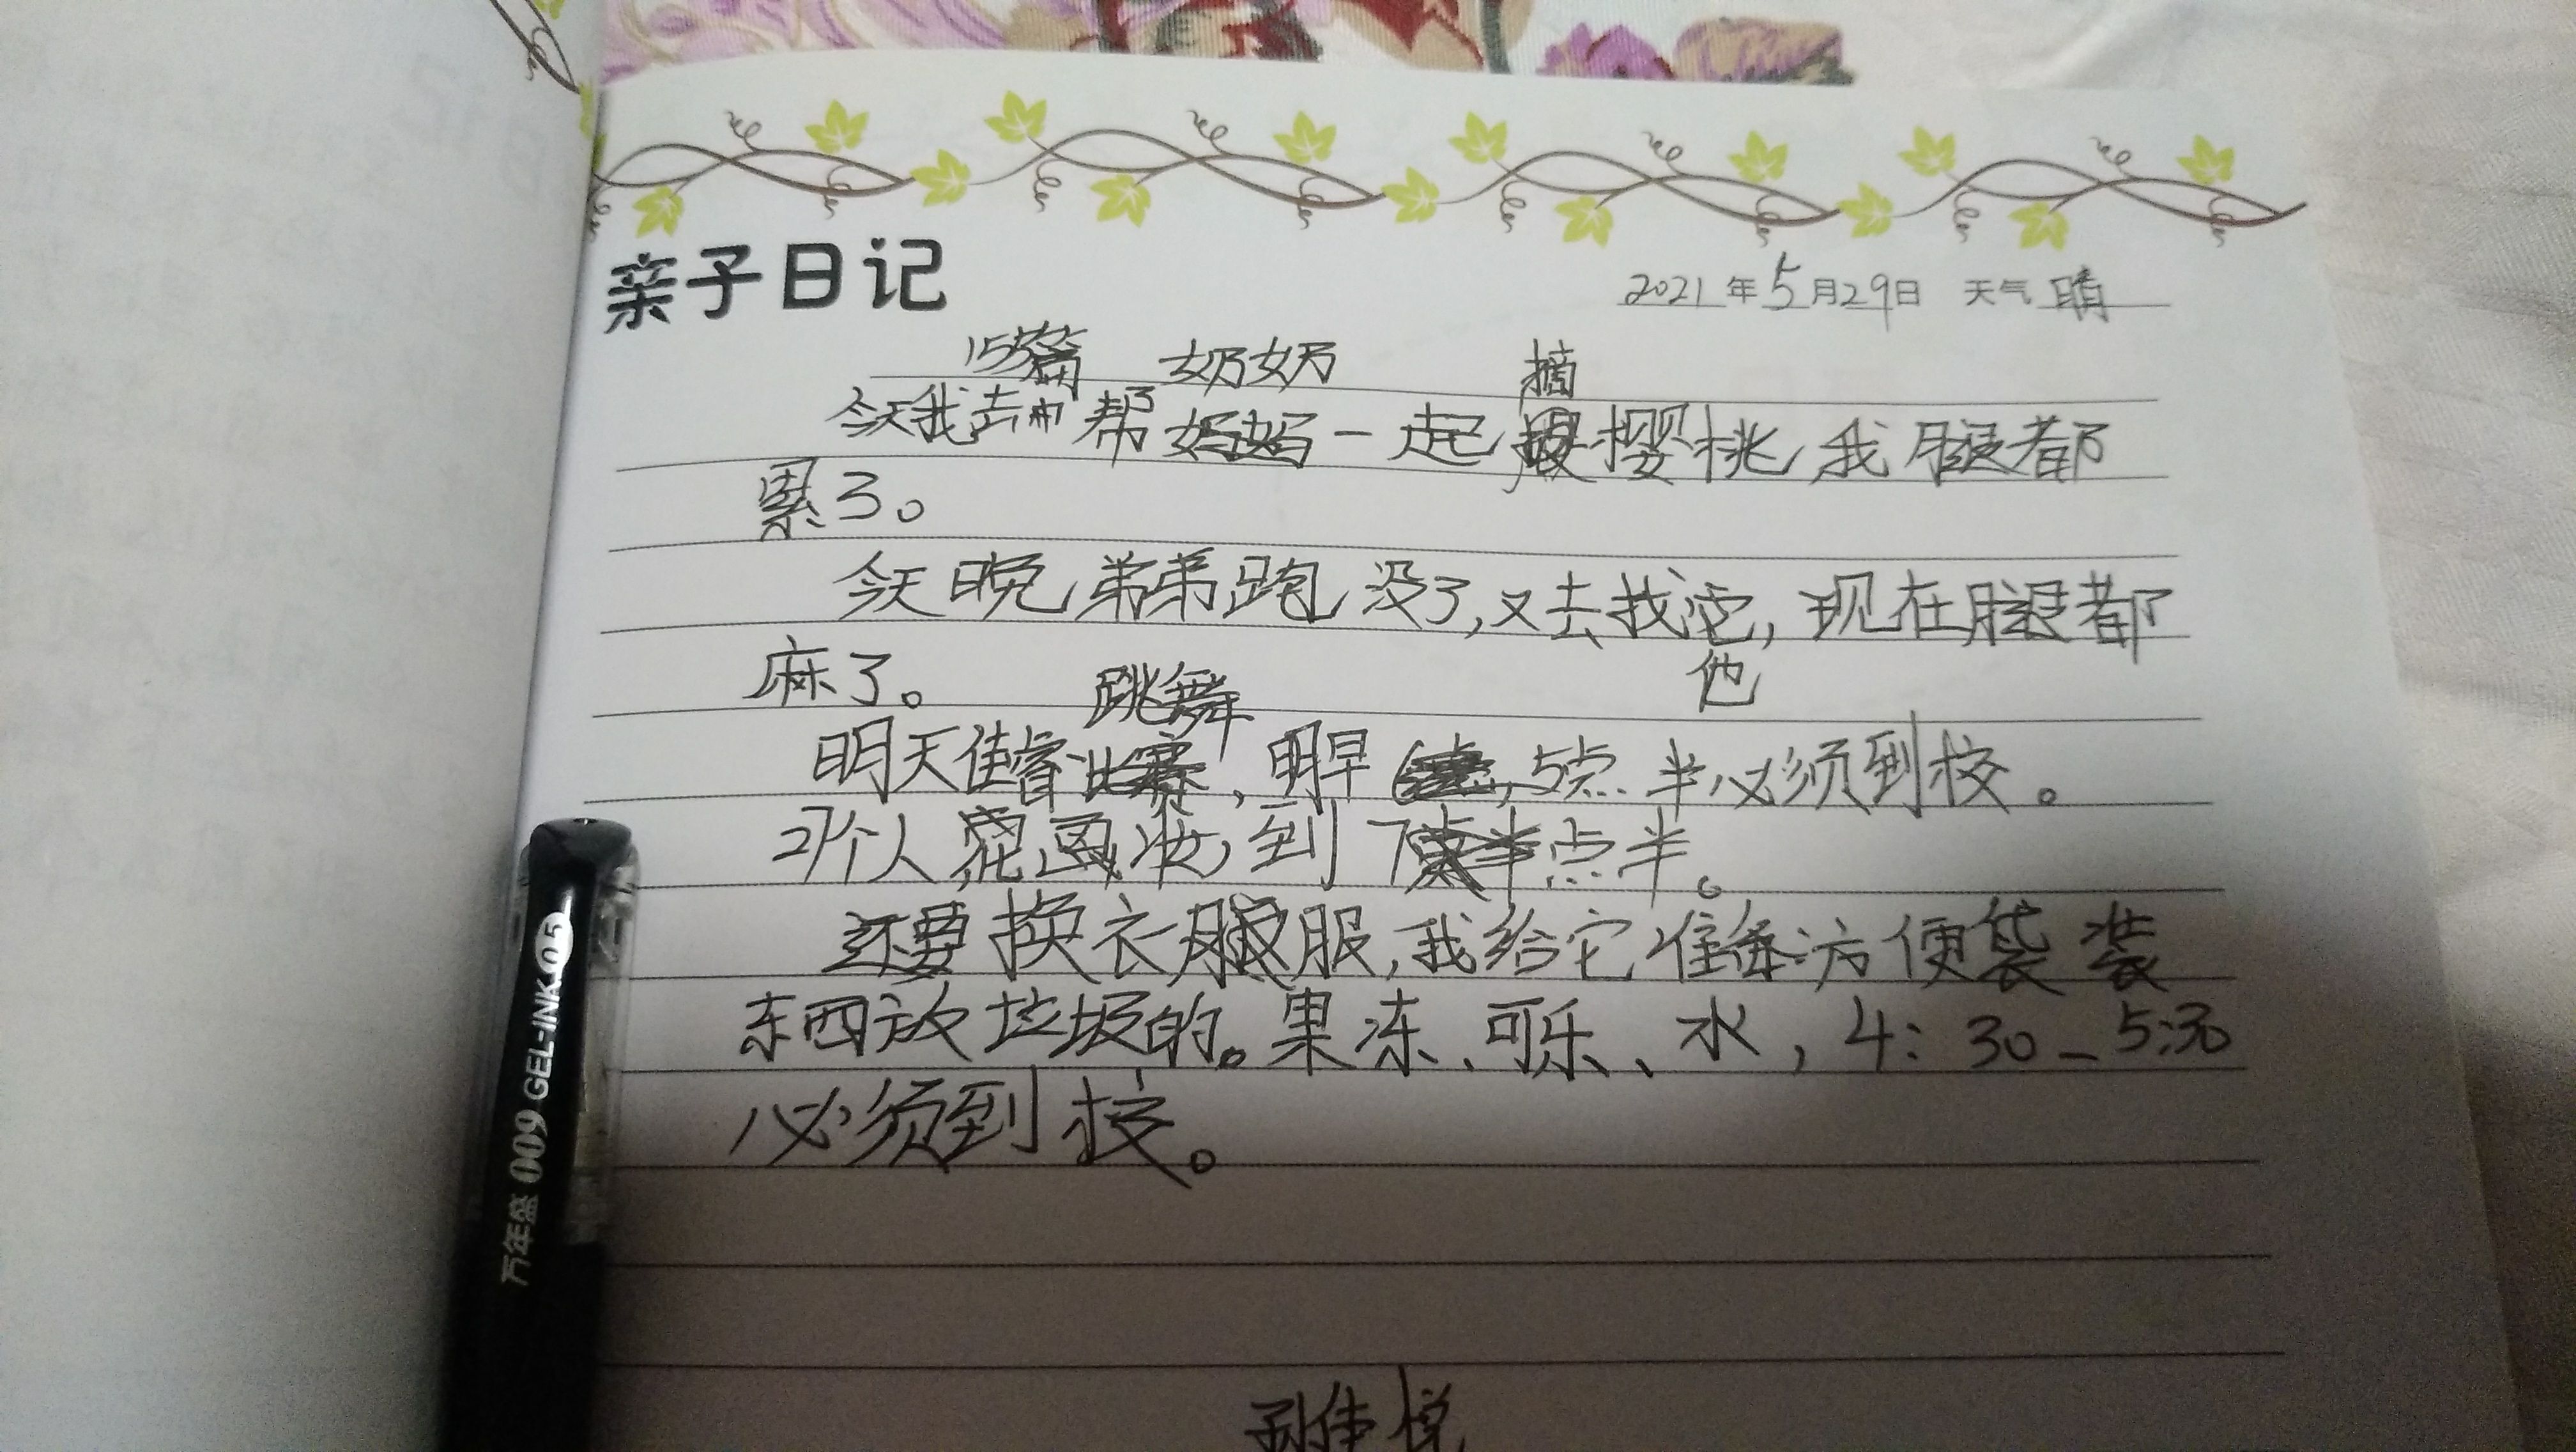 亲子日记
2021年5月29日 天气晴
155篇 奶奶 摘
今天我去 帮妈妈一起 樱桃,我腿都
累了。
今天晚,弟弟跑没了,又去找它,现在腿都
麻了。 跳舞 他
明天佳睿比赛,明早 5点半必须到校。
个人 画妆,到7点半点半。
还要换衣服,我给它准备方便袋装
东西放垃圾的。果冻、可乐、水,4:30-5:30
必须到校。
万年盛 009 GEL-INK 0.5